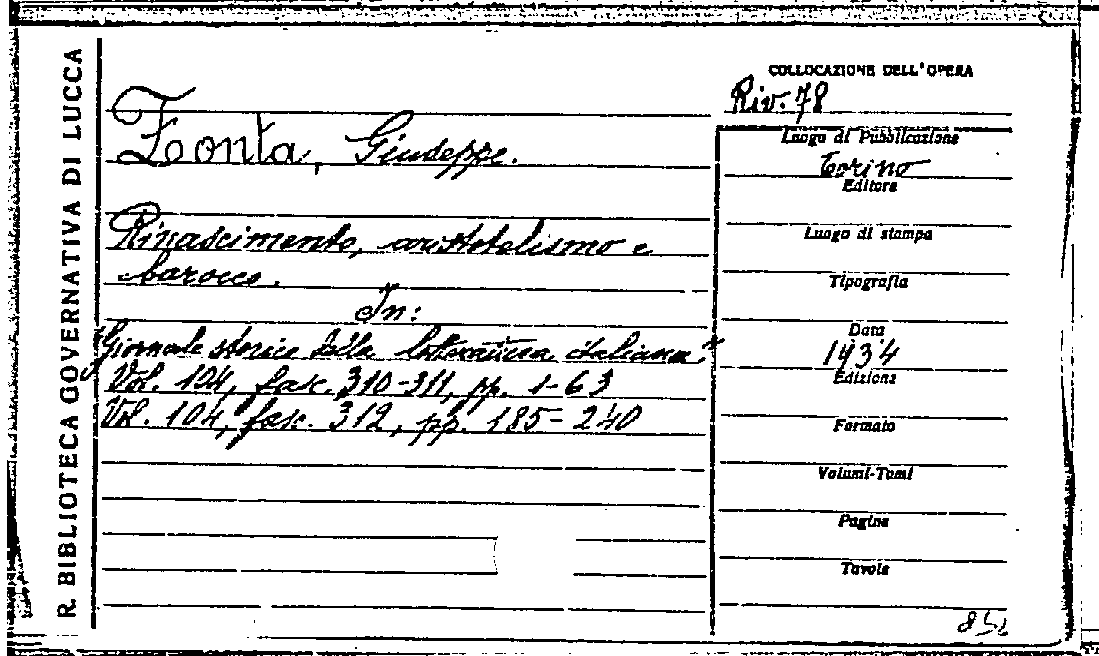 R. BIBLIOTECA GOVERNATIVA DI LUCCA
COLLOCAZIONE DELL'OPERA
Riv. 78
Zonta, Giuseppe.
Rinascimento, aristotelismo e
barocco.
In:
"Giornale storico della letteratura italiana"
Vol. 104, fasc. 310-311, pp. 1-63
Vol. 104, fasc. 312, pp. 185-240
Luogo di Pubblicazione
Torino
Editore
Luogo di stampa
Tipografia
Data
1934
Edizione
Formato
Volumi-Tomi
Pagine
Tavole